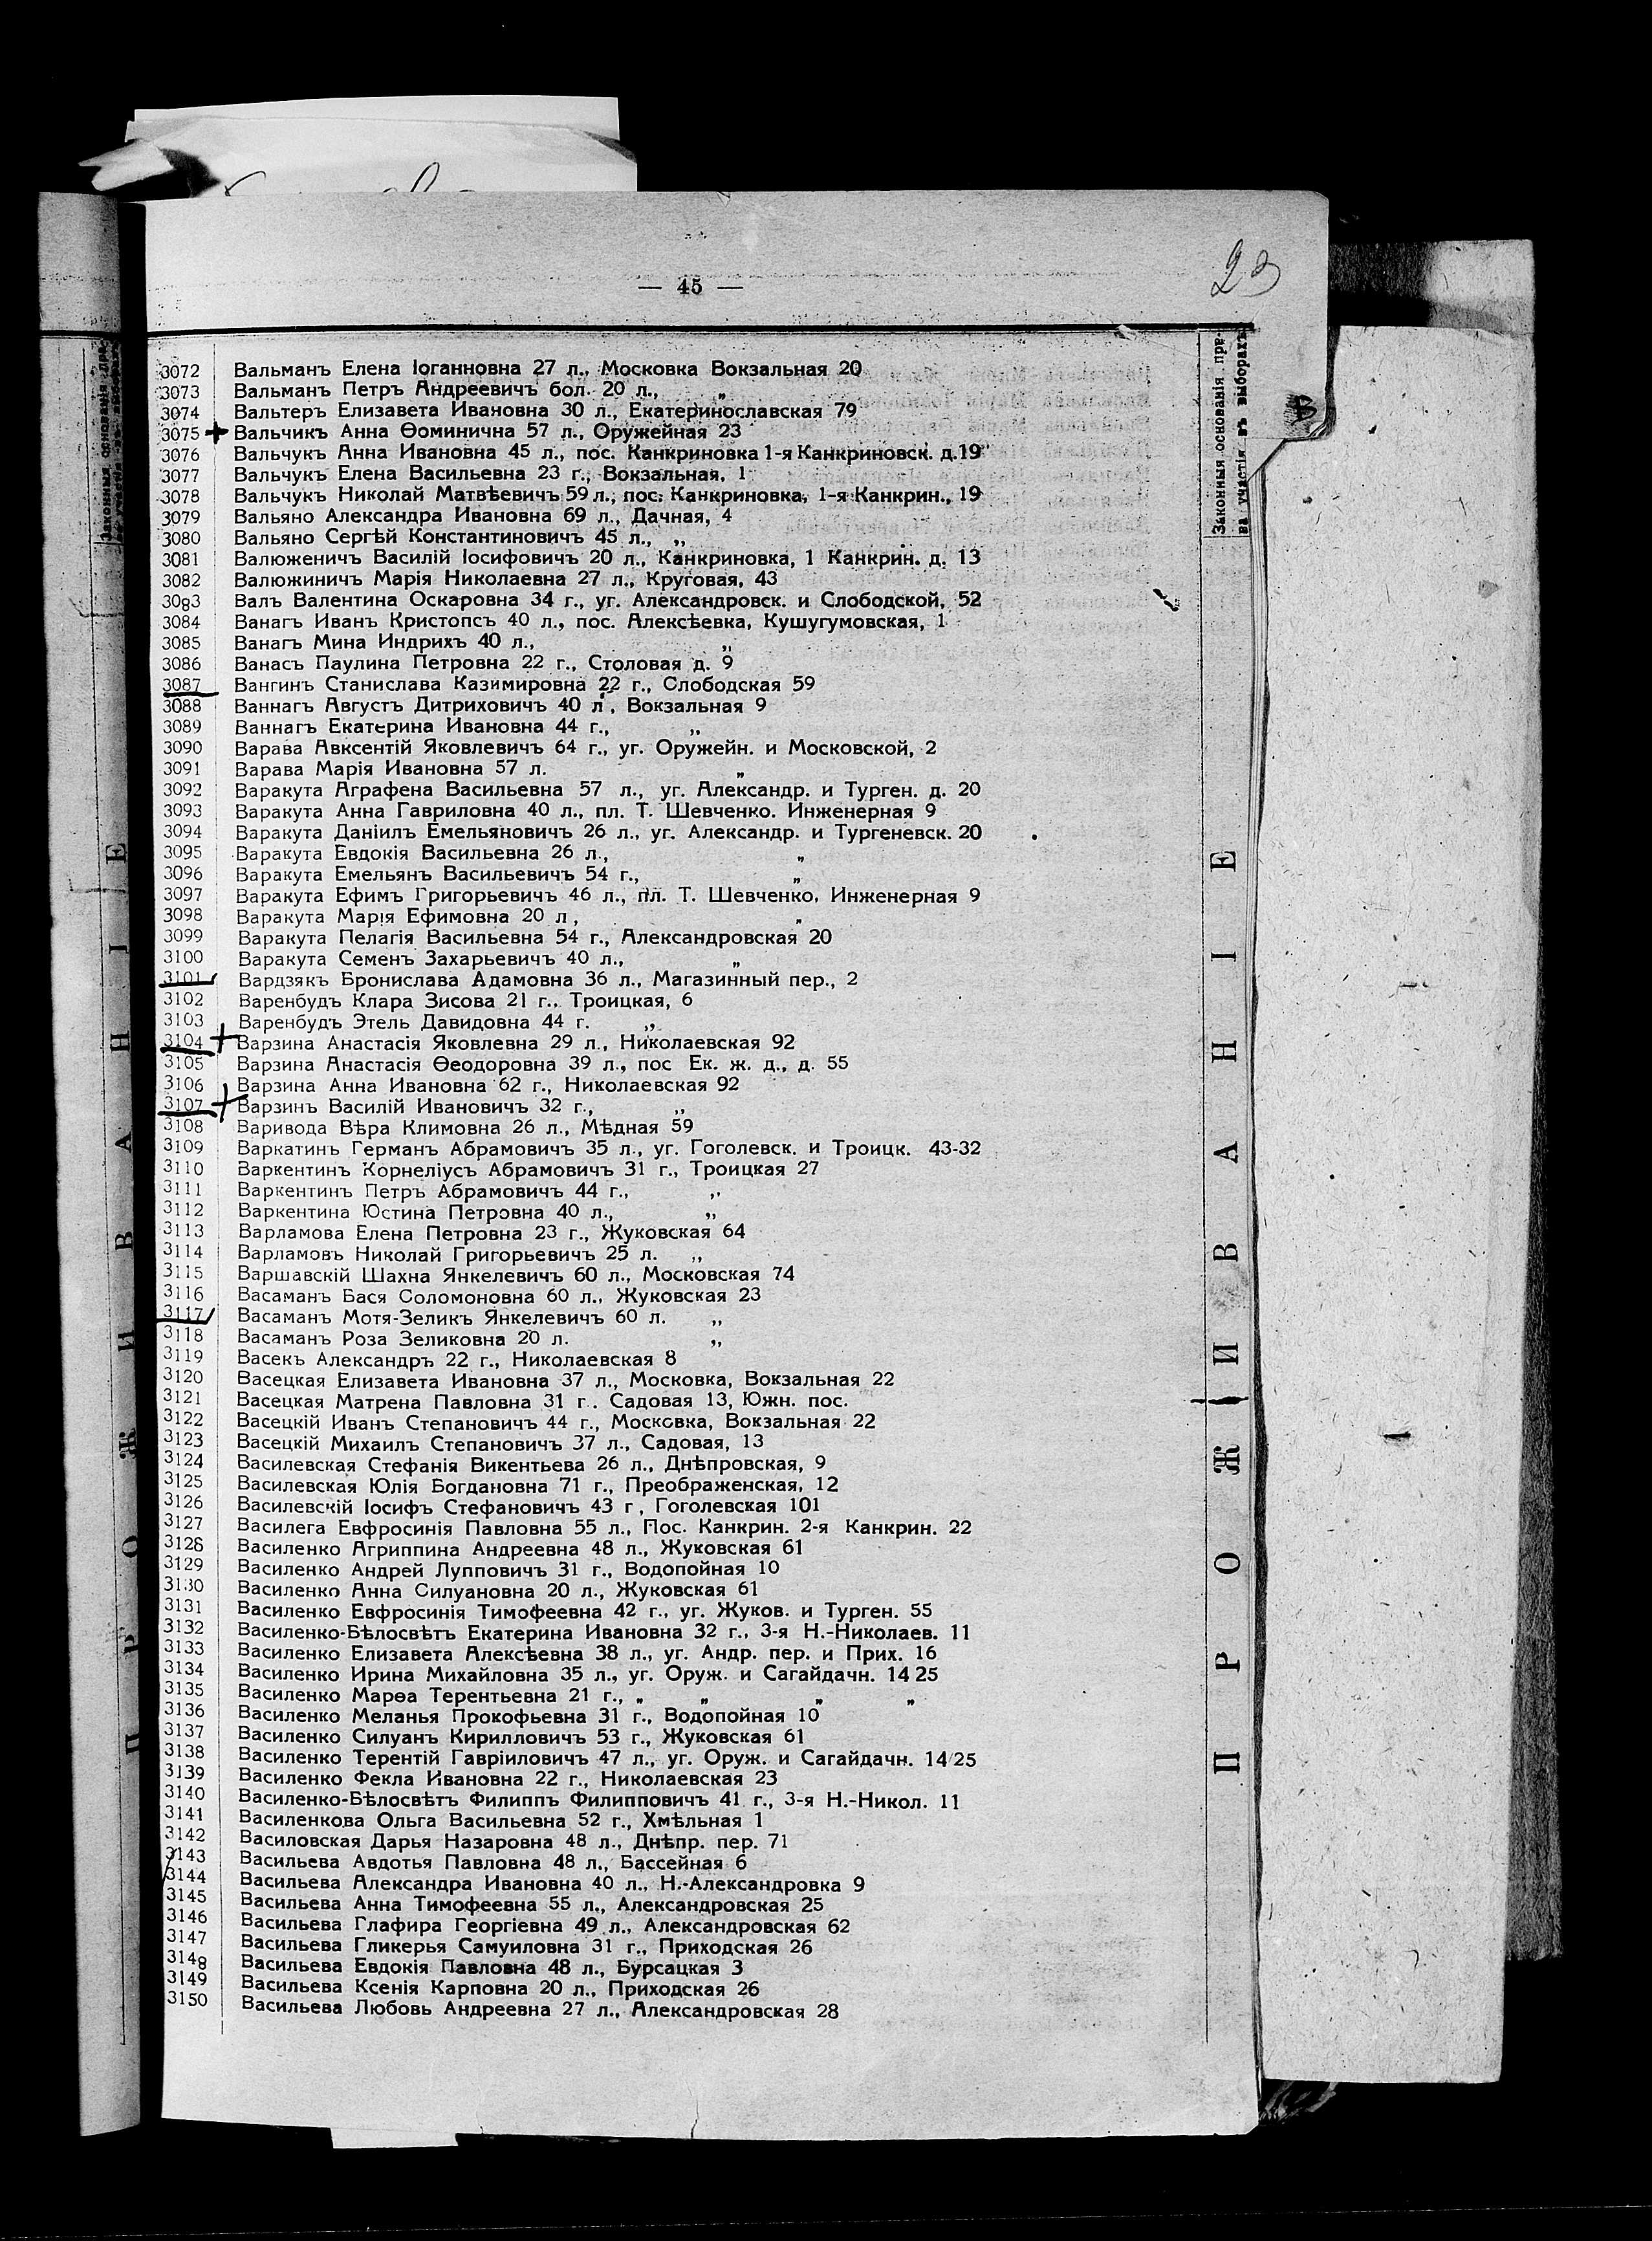 — 45 —
Законныя основанія пра-
ва участія въ выборахъ
3072 Вальманъ Елена Іоганновна 27 л., Московка Вокзальная 20
3073 Вальманъ Петръ Андреевичъ бол. 20 л., „
3074 Вальтеръ Елизавета Ивановна 30 л., Екатеринославская 79
3075 Вальчикъ Анна Ѳоминична 57 л., Оружейная 23
3076 Вальчукъ Анна Ивановна 45 л., пос. Канкриновка 1-я Канкриновск. д. 19
3077 Вальчукъ Елена Васильевна 23 г., Вокзальная, 1
3078 Вальчукъ Николай Матвѣевичъ 59 л., пос. Канкриновка, 1-я Канкрин., 19
3079 Вальяно Александра Ивановна 69 л., Дачная, 4
3080 Вальяно Сергѣй Константиновичъ 45 л., „
3081 Валюженичъ Василій Іосифовичъ 20 л., Канкриновка, 1 Канкрин. д. 13
3082 Валюжиничъ Марія Николаевна 27 л., Круговая, 43
3083 Валъ Валентина Оскаровна 34 г., уг. Александровск. и Слободской, 52
3084 Ванагъ Иванъ Кристопсъ 40 л., пос. Алексѣевка, Кушугумовская, 1
3085 Ванагъ Мина Индрихъ 40 л., „
3086 Ванасъ Паулина Петровна 22 г., Столовая д. 9
3087 Вангинъ Станислава Казимировна 22 г., Слободская 59
3088 Ваннагъ Августъ Дитриховичъ 40 л., Вокзальная 9
3089 Ваннагъ Екатерина Ивановна 44 г., „
3090 Варава Авксентій Яковлевичъ 64 г., уг. Оружейн. и Московской, 2
3091 Варава Марія Ивановна 57 л. „
3092 Варакута Аграфена Васильевна 57 л., уг. Александр. и Турген. д. 20
3093 Варакута Анна Гавриловна 40 л., пл. Т. Шевченко. Инженерная 9
3094 Варакута Даніилъ Емельяновичъ 26 л., уг. Александр. и Тургеневск. 20
3095 Варакута Евдокія Васильевна 26 л., „
3096 Варакута Емельянъ Васильевичъ 54 г., „
3097 Варакута Ефимъ Григорьевичъ 46 л., пл. Т. Шевченко, Инженерная 9
3098 Варакута Марія Ефимовна 20 л , „
3099 Варакута Пелагія Васильевна 54 г., Александровская 20
3100 Варакута Семенъ Захарьевичъ 40 л., „
3101 Вардзякъ Бронислава Адамовна 36 л., Магазинный пер., 2
3102 Варенбудъ Клара Зисова 21 г., Троицкая, 6
3103 Варенбудъ Этель Давидовна 44 г. „
3104 Варзина Анастасія Яковлевна 29 л., Николаевская 92
3105 Варзина Анастасія Ѳеодоровна 39 л., пос Ек. ж. д., д. 55
3106 Варзина Анна Ивановна 62 г., Николаевская 92
3107 Варзинъ Василій Ивановичъ 32 г., „
3108 Варивода Вѣра Климовна 26 л., Мѣдная 59
3109 Варкатинъ Германъ Абрамовичъ 35 л., уг. Гоголевск. и Троицк. 43-32
3110 Варкентинъ Корнеліусъ Абрамовичъ 31 г., Троицкая 27
3111 Варкентинъ Петръ Абрамовичъ 44 г., „
3112 Варкентина Юстина Петровна 40 л., „
3113 Варламова Елена Петровна 23 г., Жуковская 64
3114 Варламовъ Николай Григорьевичъ 25 л. „
3115 Варшавскій Шахна Янкелевичъ 60 л., Московская 74
3116 Васаманъ Бася Соломоновна 60 л., Жуковская 23
3117 Васаманъ Мотя-Зеликъ Янкелевичъ 60 л. „
3118 Васаманъ Роза Зеликовна 20 л. „
3119 Васекъ Александръ 22 г., Николаевская 8
3120 Васецкая Елизавета Ивановна 37 л., Московка, Вокзальная 22
3121 Васецкая Матрена Павловна 31 г. Садовая 13, Южн. пос.
3122 Васецкій Иванъ Степановичъ 44 г., Московка, Вокзальная 22
3123 Васецкій Михаилъ Степановичъ 37 л., Садовая, 13
3124 Василевская Стефанія Викентьева 26 л., Днѣпровская, 9
3125 Василевская Юлія Богдановна 71 г., Преображенская, 12
3126 Василевскій Іосифъ Стефановичъ 43 г , Гоголевская 101
3127 Василега Евфросинія Павловна 55 л., Пос. Канкрин. 2-я Канкрин. 22
3128 Василенко Агриппина Андреевна 48 л., Жуковская 61
3129 Василенко Андрей Лупповичъ 31 г., Водопойная 10
3130 Василенко Анна Силуановна 20 л., Жуковская 61
3131 Василенко Евфросинія Тимофеевна 42 г., уг. Жуков. и Турген. 55
3132 Василенко-Бѣлосвѣтъ Екатерина Ивановна 32 г., 3-я Н.-Николаев. 11
3133 Василенко Елизавета Алексѣевна 38 л., уг. Андр. пер. и Прих. 16
3134 Василенко Ирина Михайловна 35 л., уг. Оруж. и Сагайдачн. 14 25
3135 Василенко Марѳа Терентьевна 21 г., „ „ „ „
3136 Василенко Меланья Прокофьевна 31 г., Водопойная 10
3137 Василенко Силуанъ Кирилловичъ 53 г., Жуковская 61
3138 Василенко Терентій Гавріиловичъ 47 л., уг. Оруж. и Сагайдачн. 14/25
3139 Василенко Фекла Ивановна 22 г., Николаевская 23
3140 Василенко-Бѣлосвѣтъ Филиппъ Филипповичъ 41 г., 3-я Н.-Никол. 11
3141 Василенкова Ольга Васильевна 52 г., Хмѣльная 1
3142 Василовская Дарья Назаровна 48 л., Днѣпр. пер. 71
3143 Васильева Авдотья Павловна 48 л., Бассейная 6
3144 Васильева Александра Ивановна 40 л., Н.-Александровка 9
3145 Васильева Анна Тимофеевна 55 л., Александровская 25
3146 Васильева Глафира Георгіевна 49 л., Александровская 62
3147 Васильева Гликерья Самуиловна 31 г., Приходская 26
3148 Васильева Евдокія Павловна 48 л., Бурсацкая 3
3149 Васильева Ксенія Карповна 20 л., Приходская 26
3150 Васильева Любовь Андреевна 27 л., Александровская 28
ПРОЖИВАНІЕ